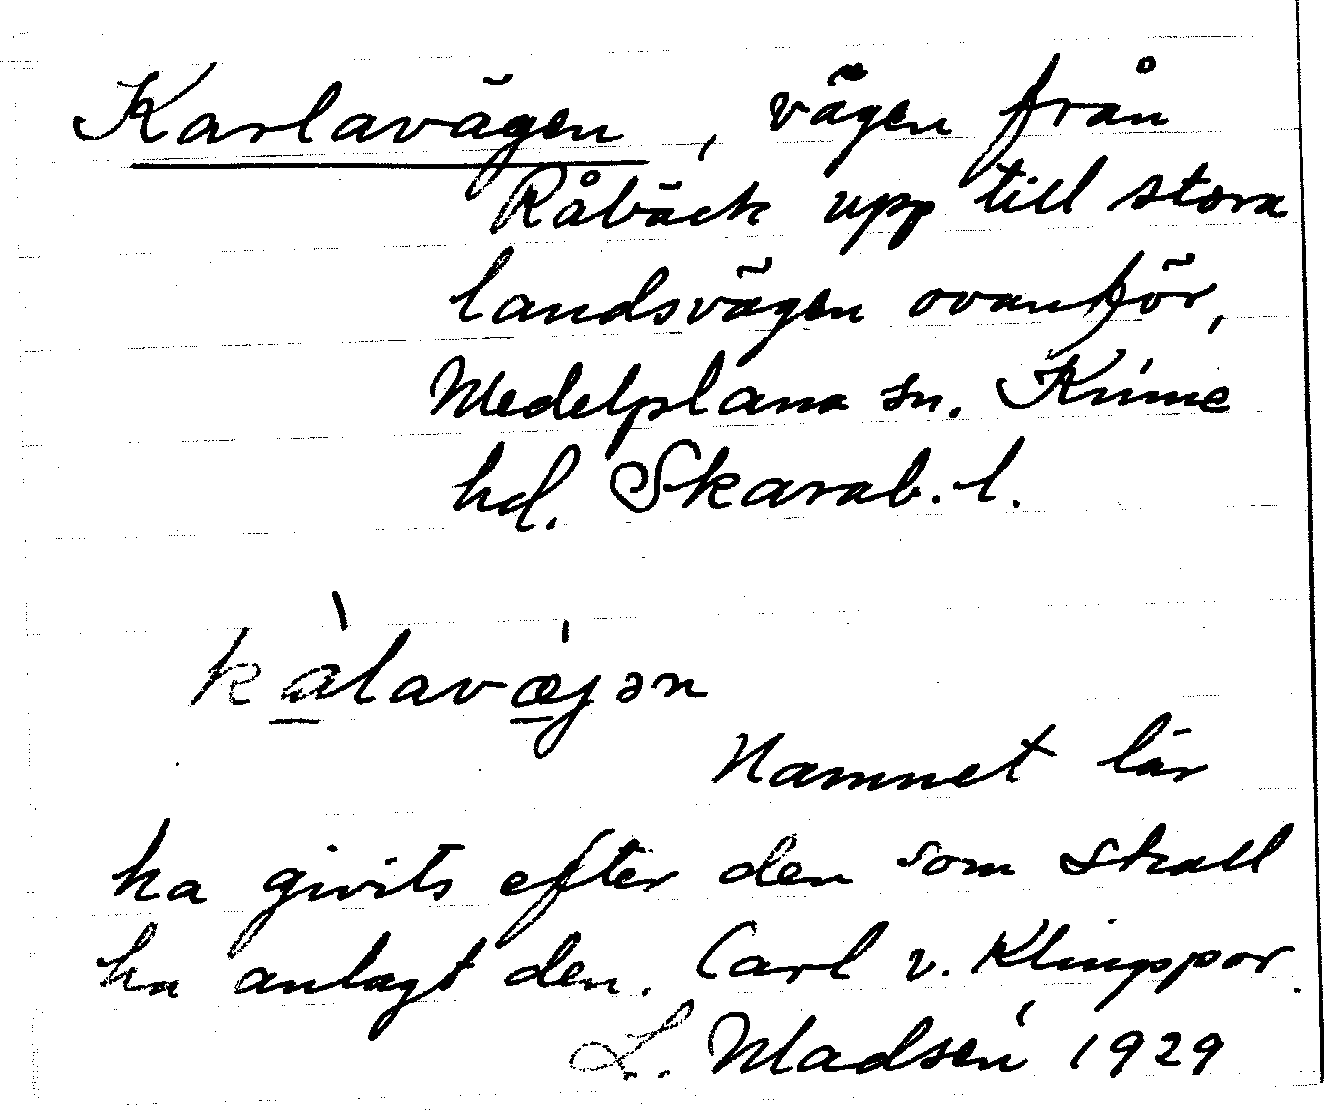 Karlavägen, vägen från
Råbäck upp till stora
landsvägen ovanför,
Medelplana sn. Kinne
hd. Skarab. l.
kàlavǽjən
Namnet lär
ha givits efter den som skall
ha anlagt den. Carl v. Klingspor.
L. Madsén 1929